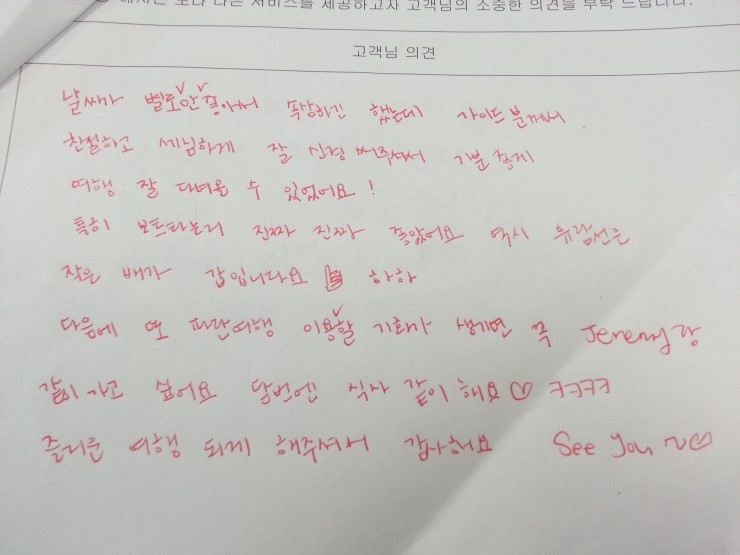 에서는 보다 나은 서비스를 제공하고자 고객님의 소중한 의견을 부탁 드립니다.
고객님 의견
날씨가 별로 안 좋아서 속상하긴 했는데 가이드분께서
친절하고 세심하게 잘 신경써주셔서 기분 좋게
여행 잘 다녀올 수 있었어요!
특히 보트타는거 진짜 진짜 좋았어요 역시 유람선은
작은 배가 갑입니다요 하하
다음에 또 파란여행 이용할 기회가 생기면 꼭 Jeremy랑
같이 가고 싶어요 담번엔 식사 같이 해요♡ ㅋㅋㅋㅋ
즐거운 여행 되게 해주셔서 감사해요 See You ~♡